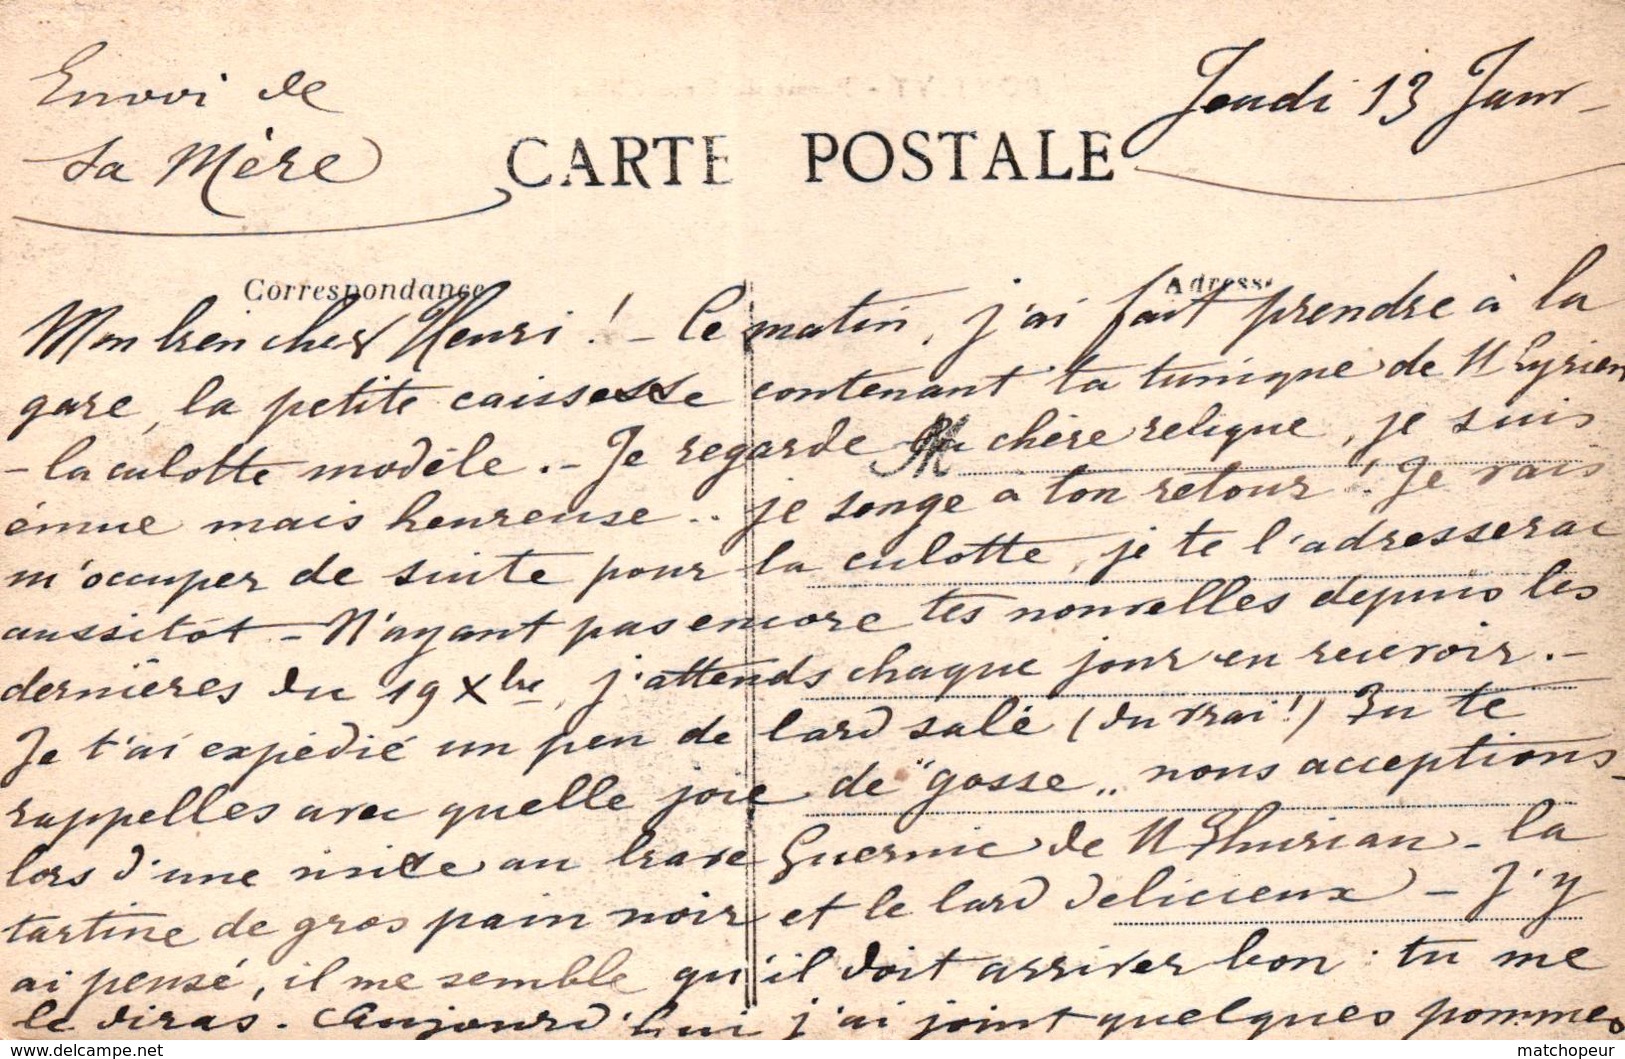 Envoi de
ta Mère
Jeudi 13 Janv
CARTE POSTALE
Correspondance
Adresse
Mon bien cher Henri ! - Ce matin, j'ai fait prendre à la
gare, la petite caisse contenant ta tunique de St Cyrien
- la culotte modèle. - Je regarde la chère relique, je suis
émue mais heureuse .. je songe à ton retour ! Je vais
m'occuper de suite pour la culotte, je te l'adresserai
aussitôt - N'ayant pas encore tes nouvelles depuis les
dernières du 19 Xbre, j'attends chaque jour en recevoir. -
Je t'ai expédié un peu de lard salé (du vrai !) Tu te
rappelles avec quelle joie de "gosse" nous acceptions
lors d'une visite au brave Guernic de St Thurian - la
tartine de gros pain noir et le lard délicieux - J'y
ai pensé, il me semble qu'il doit arriver bon : tu me
le diras. Aujourd'hui j'ai joint quelques pommes
matchopeur